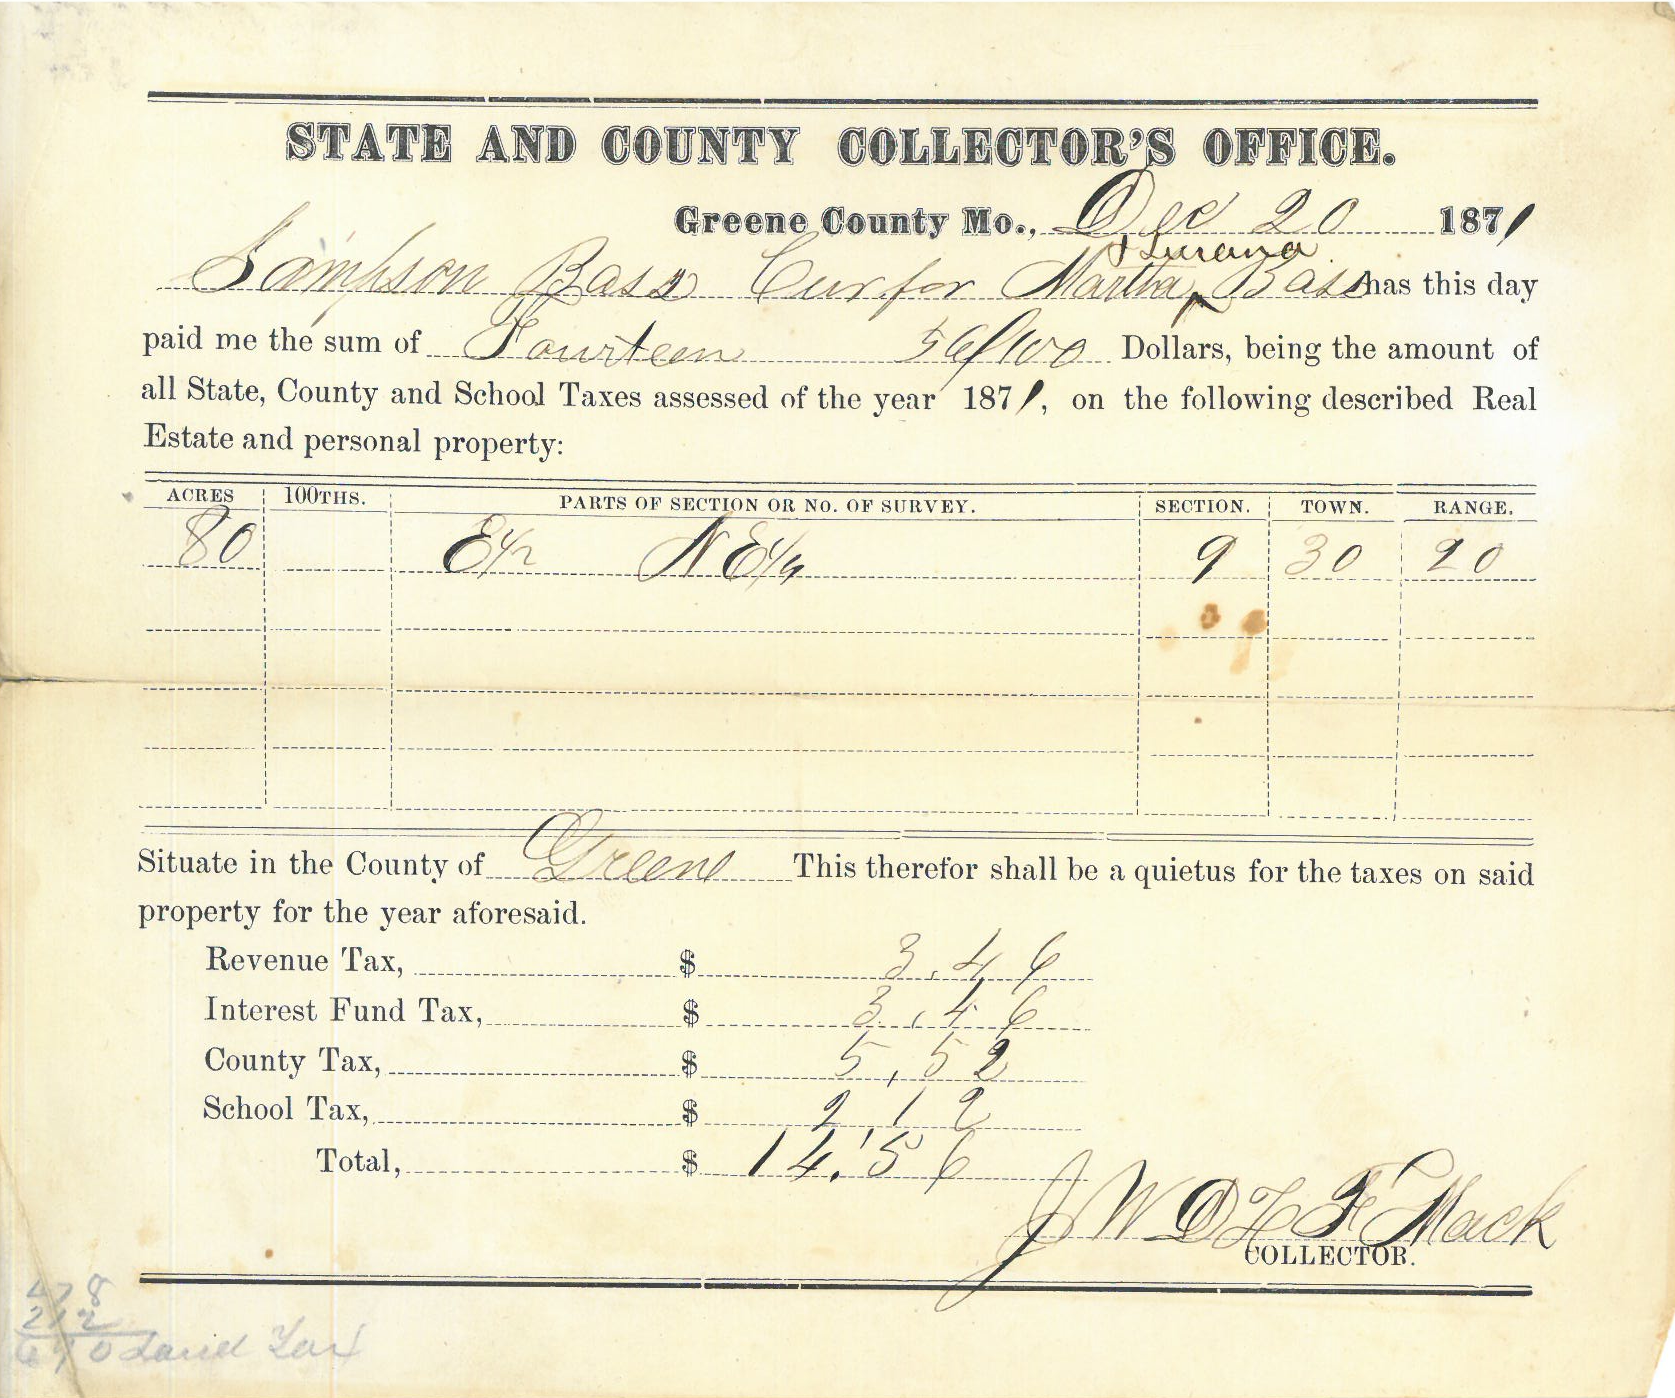 STATE AND COUNTY COLLECTOR'S OFFICE.
Greene County Mo., Dec 20 1871
& Lurana
Sampson Bass Cur for Martha ‸ Bass has this day
paid me the sum of Fourteen 56/100 Dollars, being the amount of
all State, County and School Taxes assessed of the year 1871, on the following described Real
Estate and personal property:
ACRES 100THS. PARTS OF SECTION OR NO. OF SURVEY. SECTION. TOWN. RANGE.
80 E 1/2 N E 1/4 9 30 20
Situate in the County of Greene This therefor shall be a quietus for the taxes on said
property for the year aforesaid.
Revenue Tax, $ 3,46
Interest Fund Tax, $ 3,46
County Tax, $ 5,52
School Tax, $ 2,12
Total, $ 14.56
J W D L F Mack
COLLECTOR.
478
212
690 Land Tax